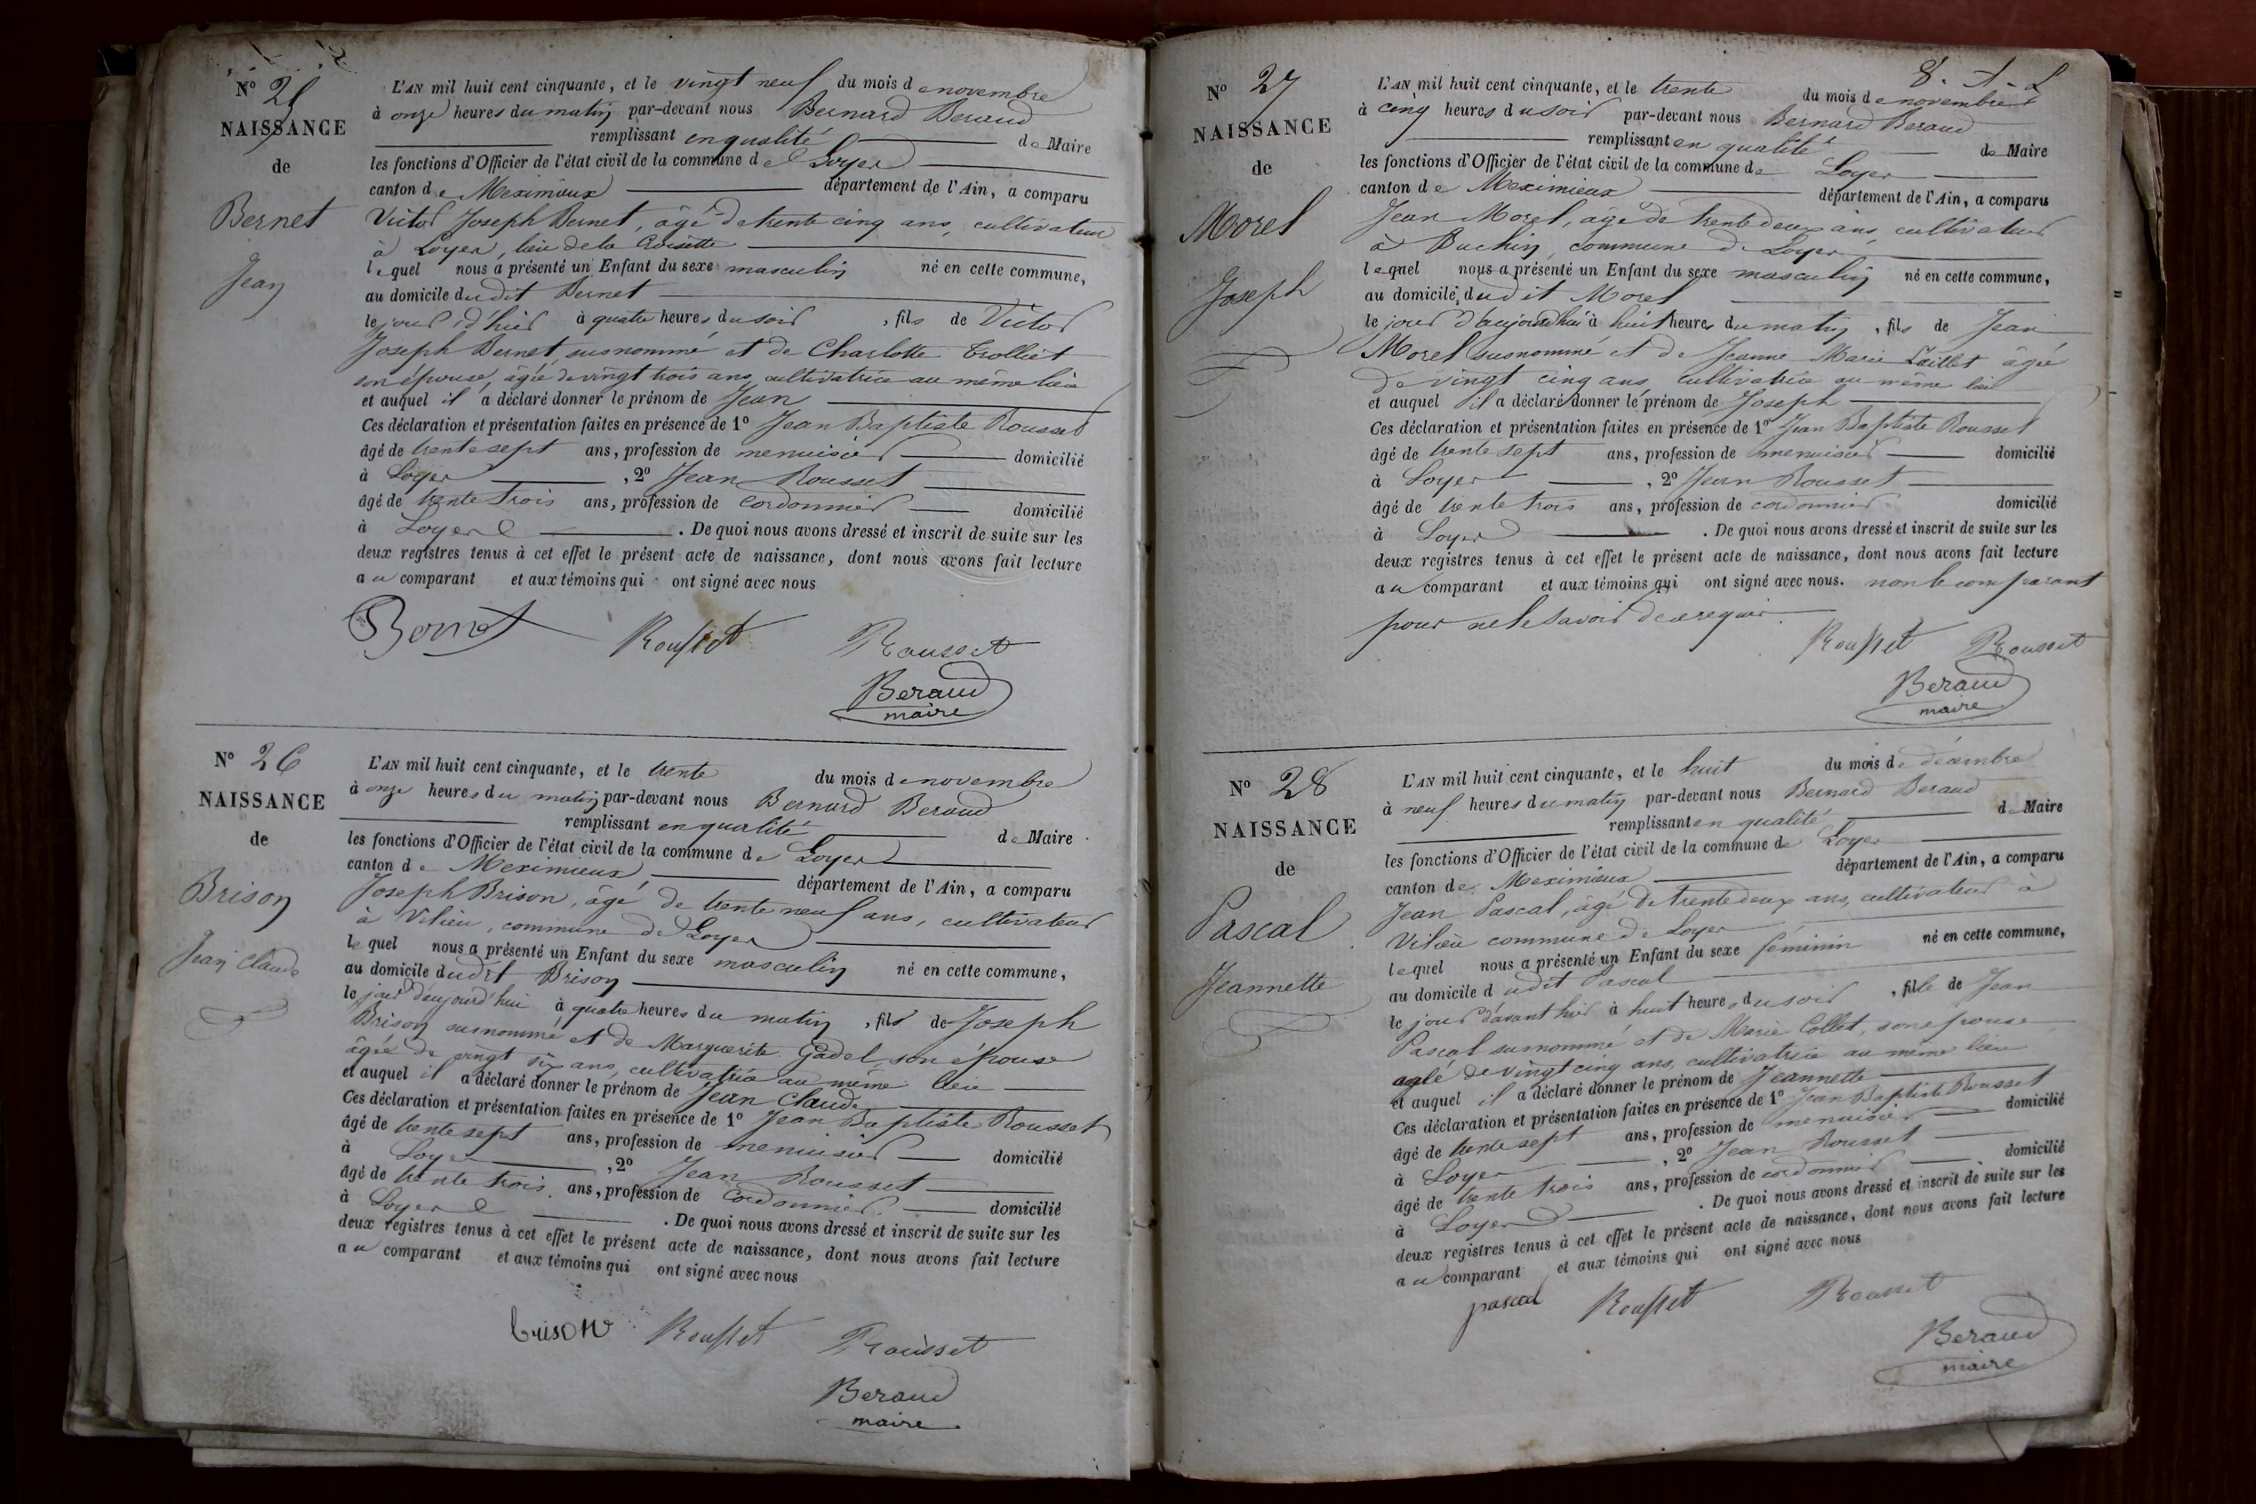 N° 25
NAISSANCE
de
Bernet
Jean
L'AN mil huit cent cinquante, et le vingt neuf du mois de novembre
à onze heures du matin par-devant nous Bernard Beraud
remplissant en qualité de Maire
les fonctions d'Officier de l'état civil de la commune de Loyer
canton de Meximieux département de l'Ain, a comparu
Victor Joseph Bernet, âgé de trente cinq ans, cultivateur
à Loyer, lieu de la Croisette
lequel nous a présenté un Enfant du sexe masculin né en cette commune,
au domicile dudit Bernet
le jour d'hier à quatre heures du soir, fils de Victor
Joseph Bernet susnommé et de Charlotte Trolliet
son épouse, âgée de vingt trois ans, cultivatrice au même lieu
et auquel il a déclaré donner le prénom de Jean
Ces déclaration et présentation faites en présence de 1° Jean Baptiste Rousset
âgé de trente sept ans, profession de menuisier domicilié
à Loyer, 2° Jean Rousset
âgé de trente trois ans, profession de cordonnier domicilié
à Loyer. De quoi nous avons dressé et inscrit de suite sur les
deux registres tenus à cet effet le présent acte de naissance, dont nous avons fait lecture
au comparant et aux témoins qui ont signé avec nous
Bernet Rousset Rousset
Beraud
maire
N° 26
NAISSANCE
de
Brison
Jean Claude
L'AN mil huit cent cinquante, et le trente du mois de novembre
à onze heures du matin par-devant nous Bernard Beraud
remplissant en qualité de Maire
les fonctions d'Officier de l'état civil de la commune de Loyer
canton de Meximieux, département de l'Ain, a comparu
Joseph Brison, âgé de trente neuf ans, cultivateur
à Vilieu, commune de Loyer
lequel nous a présenté un Enfant du sexe masculin né en cette commune,
au domicile dudit Brison
le jour d'aujourd'hui à quatre heures du matin, fils de Joseph
Brison susnommé et de Marguerite Gadel son épouse
âgée de vingt six ans, cultivatrice au même lieu
et auquel il a déclaré donner le prénom de Jean Claude
Ces déclaration et présentation faites en présence de 1° Jean Baptiste Rousset
âgé de trente sept ans, profession de menuisier domicilié
à Loyer, 2° Jean Rousset
âgé de trente trois ans, profession de cordonnier domicilié
à Loyer. De quoi nous avons dressé et inscrit de suite sur les
deux registres tenus à cet effet le présent acte de naissance, dont nous avons fait lecture
au comparant et aux témoins qui ont signé avec nous
brison Rousset Rousset
Beraud
maire
N° 27
NAISSANCE
de
Morel
Joseph
L'AN mil huit cent cinquante, et le trente du mois de novembre
à cinq heures du soir par-devant nous Bernard Beraud
remplissant en qualité de Maire
les fonctions d'Officier de l'état civil de la commune de Loyer
canton de Meximieux département de l'Ain, a comparu
Jean Morel, âgé de trente deux ans, cultivateur
à Buchin, commune de Loyer
lequel nous a présenté un Enfant du sexe masculin né en cette commune,
au domicile dudit Morel
le jour d'aujourdhui à huit heures du matin, fils de Jean
Morel susnommé et de Jeanne Marie Laillet âgée
de vingt cinq ans cultivatrice au même lieu
et auquel il a déclaré donner le prénom de Joseph
Ces déclaration et présentation faites en présence de 1° Jean Baptiste Rousset
âgé de trente sept ans, profession de menuisier domicilié
à Loyer, 2° Jean Rousset
âgé de trente trois ans, profession de cordonnier domicilié
à Loyer. De quoi nous avons dressé et inscrit de suite sur les
deux registres tenus à cet effet le présent acte de naissance, dont nous avons fait lecture
au comparant et aux témoins qui ont signé avec nous. non le comparant
pour ne le savoir de ce requis.
Rousset Rousset
Beraud
maire
N° 28
NAISSANCE
de
Pascal
Jeannette
L'AN mil huit cent cinquante, et le huit du mois de décembre
à neuf heures du matin par-devant nous Bernard Beraud
remplissant en qualité de Maire
les fonctions d'Officier de l'état civil de la commune de Loyer
canton de Meximieux département de l'Ain, a comparu
Jean Pascal, âgé de trente deux ans, cultivateur à
Vilieu commune de Loyer
lequel nous a présenté un Enfant du sexe féminin né en cette commune,
au domicile dudit Pascal
le jour d'avant hier à huit heures du soir, fille de Jean
Pascal susnommé et de Marie Collet, son epouse
agée de vingt cinq ans, cultivatrice au même lieu
et auquel il a déclaré donner le prénom de Jeannette
Ces déclaration et présentation faites en présence de 1° Jean Baptiste Rousset
âgé de trente sept ans, profession de menuisier domicilié
à Loyer, 2° Jean Rousset
âgé de trente trois ans, profession de cordonnier domicilié
à Loyer. De quoi nous avons dressé et inscrit de suite sur les
deux registres tenus à cet effet le présent acte de naissance, dont nous avons fait lecture
au comparant et aux témoins qui ont signé avec nous
pascal Rousset Rousset
Beraud
maire